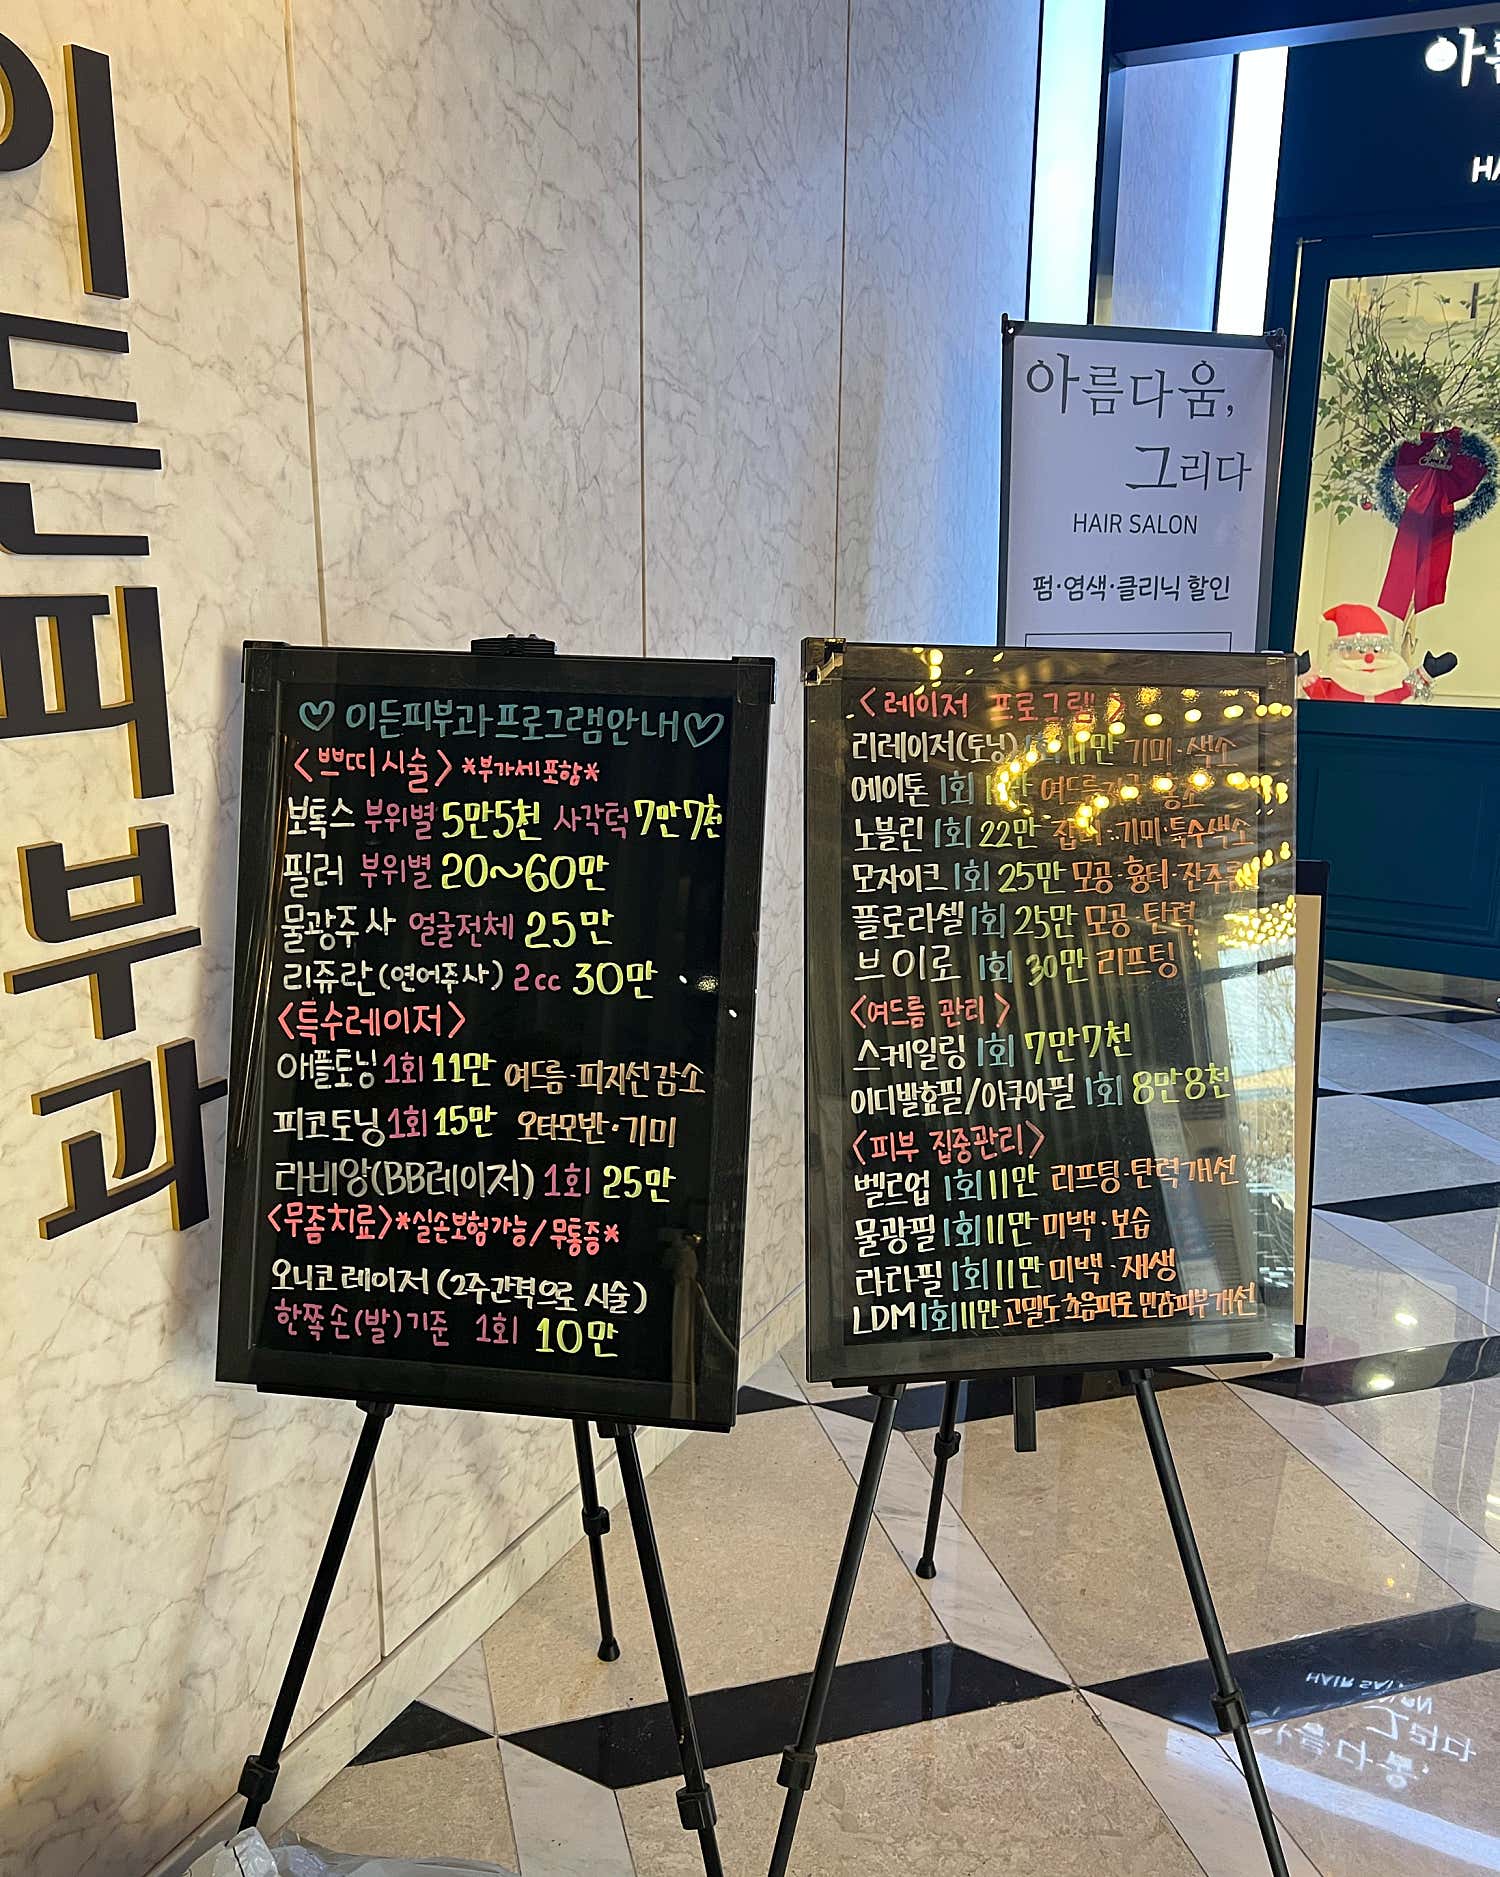 이든피부과
♡ 이든피부과프로그램안내♡
<쁘띠시술> *부가세포함*
보톡스 부위별 5만5천 사각턱 7만7천
필러 부위별 20~60만
물광주사 얼굴전체 25만
리쥬란(연어주사) 2cc 30만
<특수레이저>
애플토닝 1회 11만 여드름·피지선감소
피코토닝 1회 15만 오타모반·기미
라비앙(BB레이저) 1회 25만
<무좀치료>*실손보험가능/무통증*
오니코레이저 (2주간격으로 시술)
한쪽손(발)기준 1회 10만
<레이저 프로그램>
리레이저(토닝) 11만 기미·색소
에이톤 1회 여드름
노블린 1회 22만 잡티·기미·특수색소
모자이크 1회 25만 모공·흉터·잔주름
플로라셀 1회 25만 모공·탄력
브이로 1회 30만 리프팅
<여드름 관리>
스케일링 1회 7만7천
이디발효필/아쿠아필 1회 8만8천
<피부 집중관리>
벨로업 1회 11만 리프팅·탄력개선
물광필 1회 11만 미백·보습
라라필 1회 11만 미백·재생
LDM 1회 11만 고밀도초음파로 민감피부개선
아름다움,
그리다
HAIR SALON
펌·염색·클리닉 할인